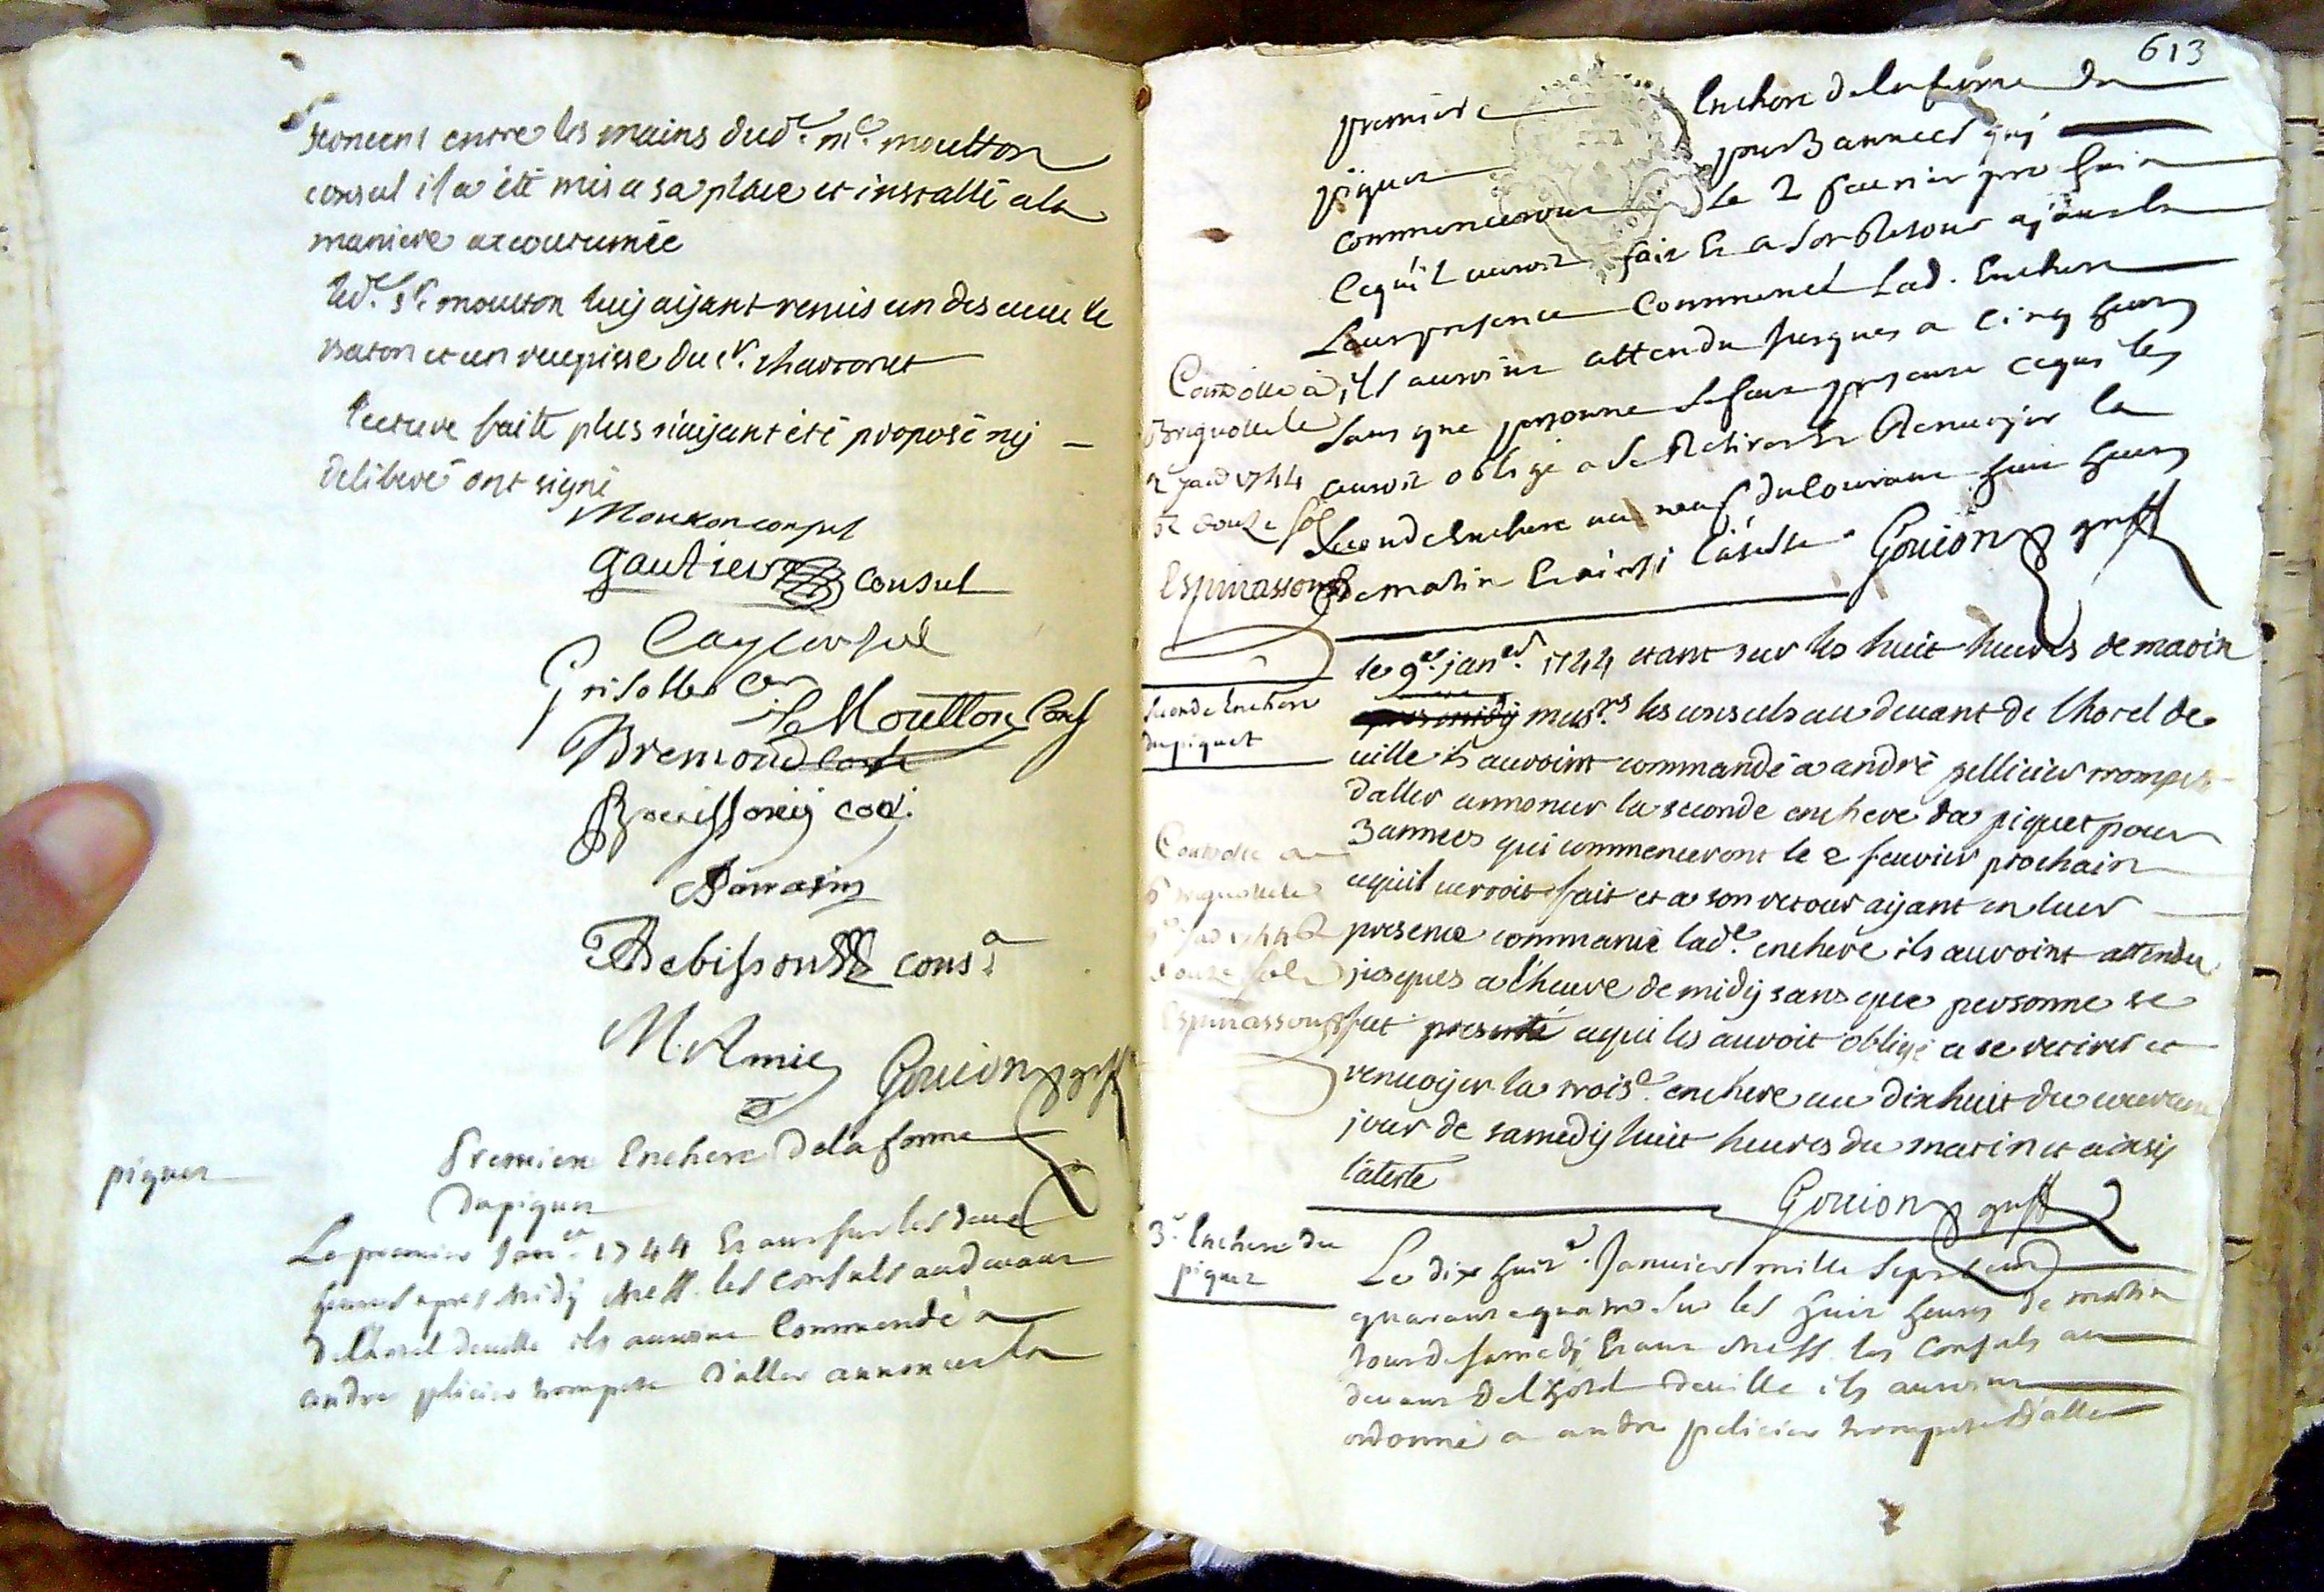 entre les mains dud.e m.e moutton
consul il a été mis a sa place et installé a la
maniere accoutumée
led.e s.r moutton luy aijant remis un des
baton et un recepisse du s.r
lecture faite plus n'aijant été proposé nij
deliberé ont signé
Moutton consul
gautier consul
Cay consul
Grisolles
Moutton Cons
Bremond
Bouissonij
Amic
M. Amic
Gouion greff
piquet
Premiere Enchere de la ferme
du piquet
Le premier Janer 1744 Etant sur les deux
heures apres Midy Mess. les Consuls au devant
de l'hotel de ville ils auroint Commendé a
andre pelicier trompete d'aller annoncer la
613
premiere Enchere de la ferme du
piquet pour 3 années quj
commenceront le 2 feurier prochain
ce qu'il auroit fait Et a son Retour ajant en
Leur presence Commencé Lad. Enchere
ils auroint attendu jusques a Cinq heures
sans que personne se feut presenté ce qui les
auroit obligé a se Retirer Et Renvoyer la
seconde Enchere au neuf du Courant huit heures
de matin Et ainsi l'atteste Gouion greff
Controlle a
Brignolle le
2 janv 1744
R douze sols
Espinasson
le 9e janer 1744 etant sur les huit heures de matin
messrs les consuls au devant de l'hotel de
ville ils auroint commandé a andré pellicier trompete
d'aller annoncer la seconde enchere du piquet pour
3 années qui commenceront le 2 feurier prochain
ce qu'il auroit fait et a son retour aijant en leur
presence commancé lad.e enchere ils auroint attendu
jusques a l'heure de midij sans que personne se
fut presenté ce qui les auroit obligé a se retirer et
renvoyer la trois.e enchere au dix huit du courant
jour de samedij huit heures du matin et ainsij
l'atteste
Gouion greff
seconde Enchere
du piquet
Controlle a
Brignolle le
douze sols
Espinasson
3e Enchere du
piquet
Le dix huit Janvier mille sept cent
quarante quatre sur les huit heures de matin
Jour de samedj Etant Mess. les Consuls au
devant de l'hotel de ville ils auroint
ordonné a andre pelicier trompete d'aller